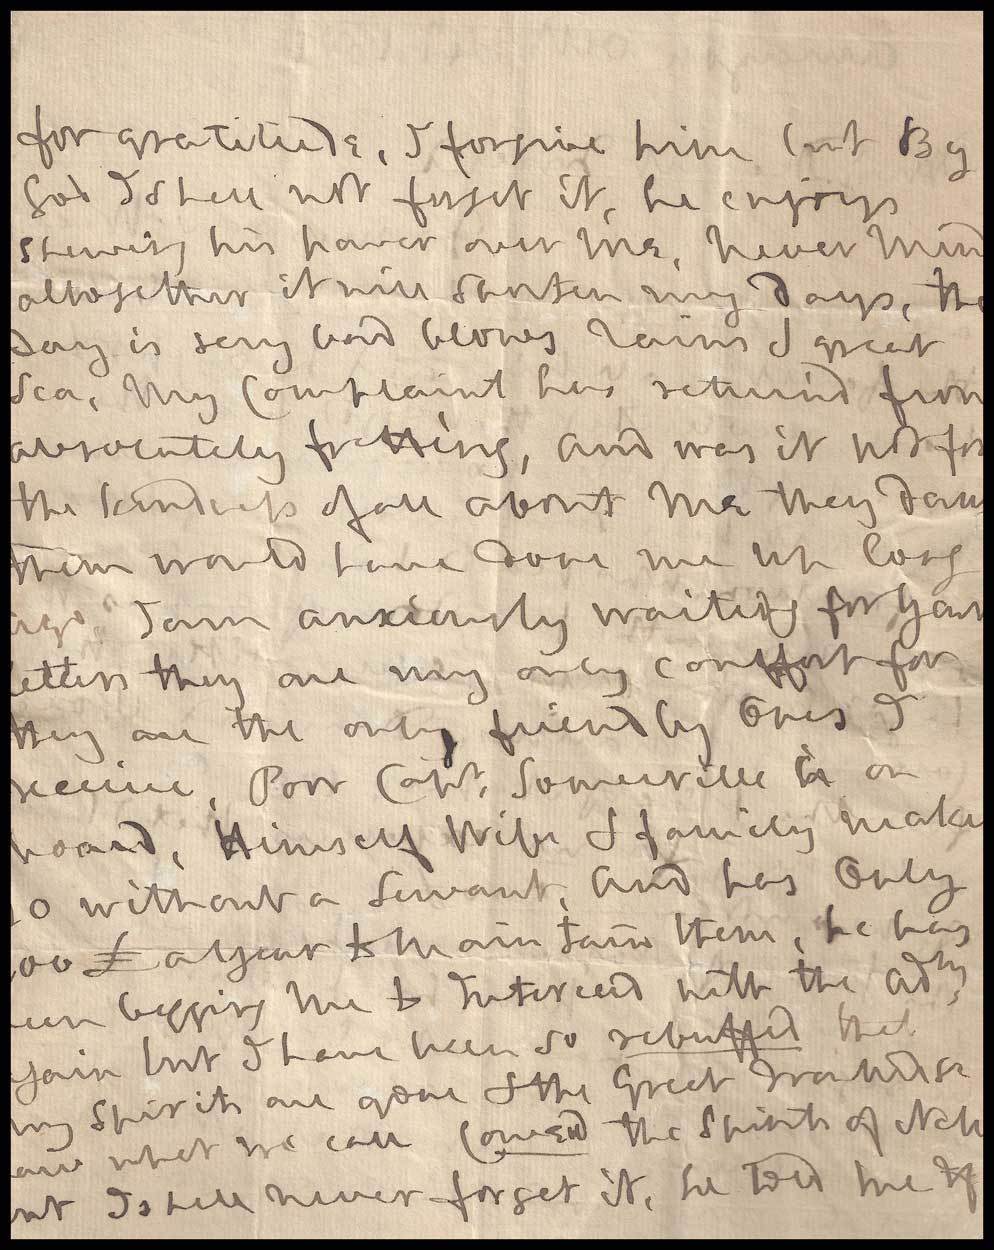 for gratitude, I forgive him but By
God I shall not forget it, he enjoys
shewing his power over Me, Never Mind
altogether it will shorten my days, the
Day is very bad blows rains & great
Sea, My Complaint has returnd from
absolutely fretting, and was it not for
the kindness of all about Me they damn
them would have done me up long
ago. I am anxiously waiting for your
letters they are my only comfort for
they are the only friendly Ones I
receive, Poor Capt. Somerville is on
board, Himself Wife & family make
20 without a Servant, and has Only
100 £ a year to Maintain them, he has
been begging Me to Interceed with the Adty
again but I have been so rebuffed that
my spirits are gone & the Great Troubridge
has what we call Cowed the Spirits of Nelson
but I shall never forget it, he told me if